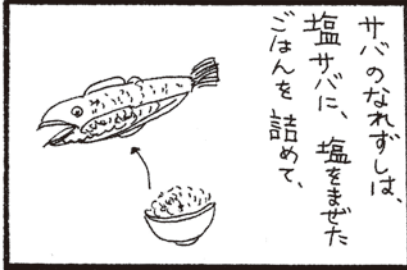 サバのなれずしは、
塩サバに、塩をまぜた
ごはんを詰めて、